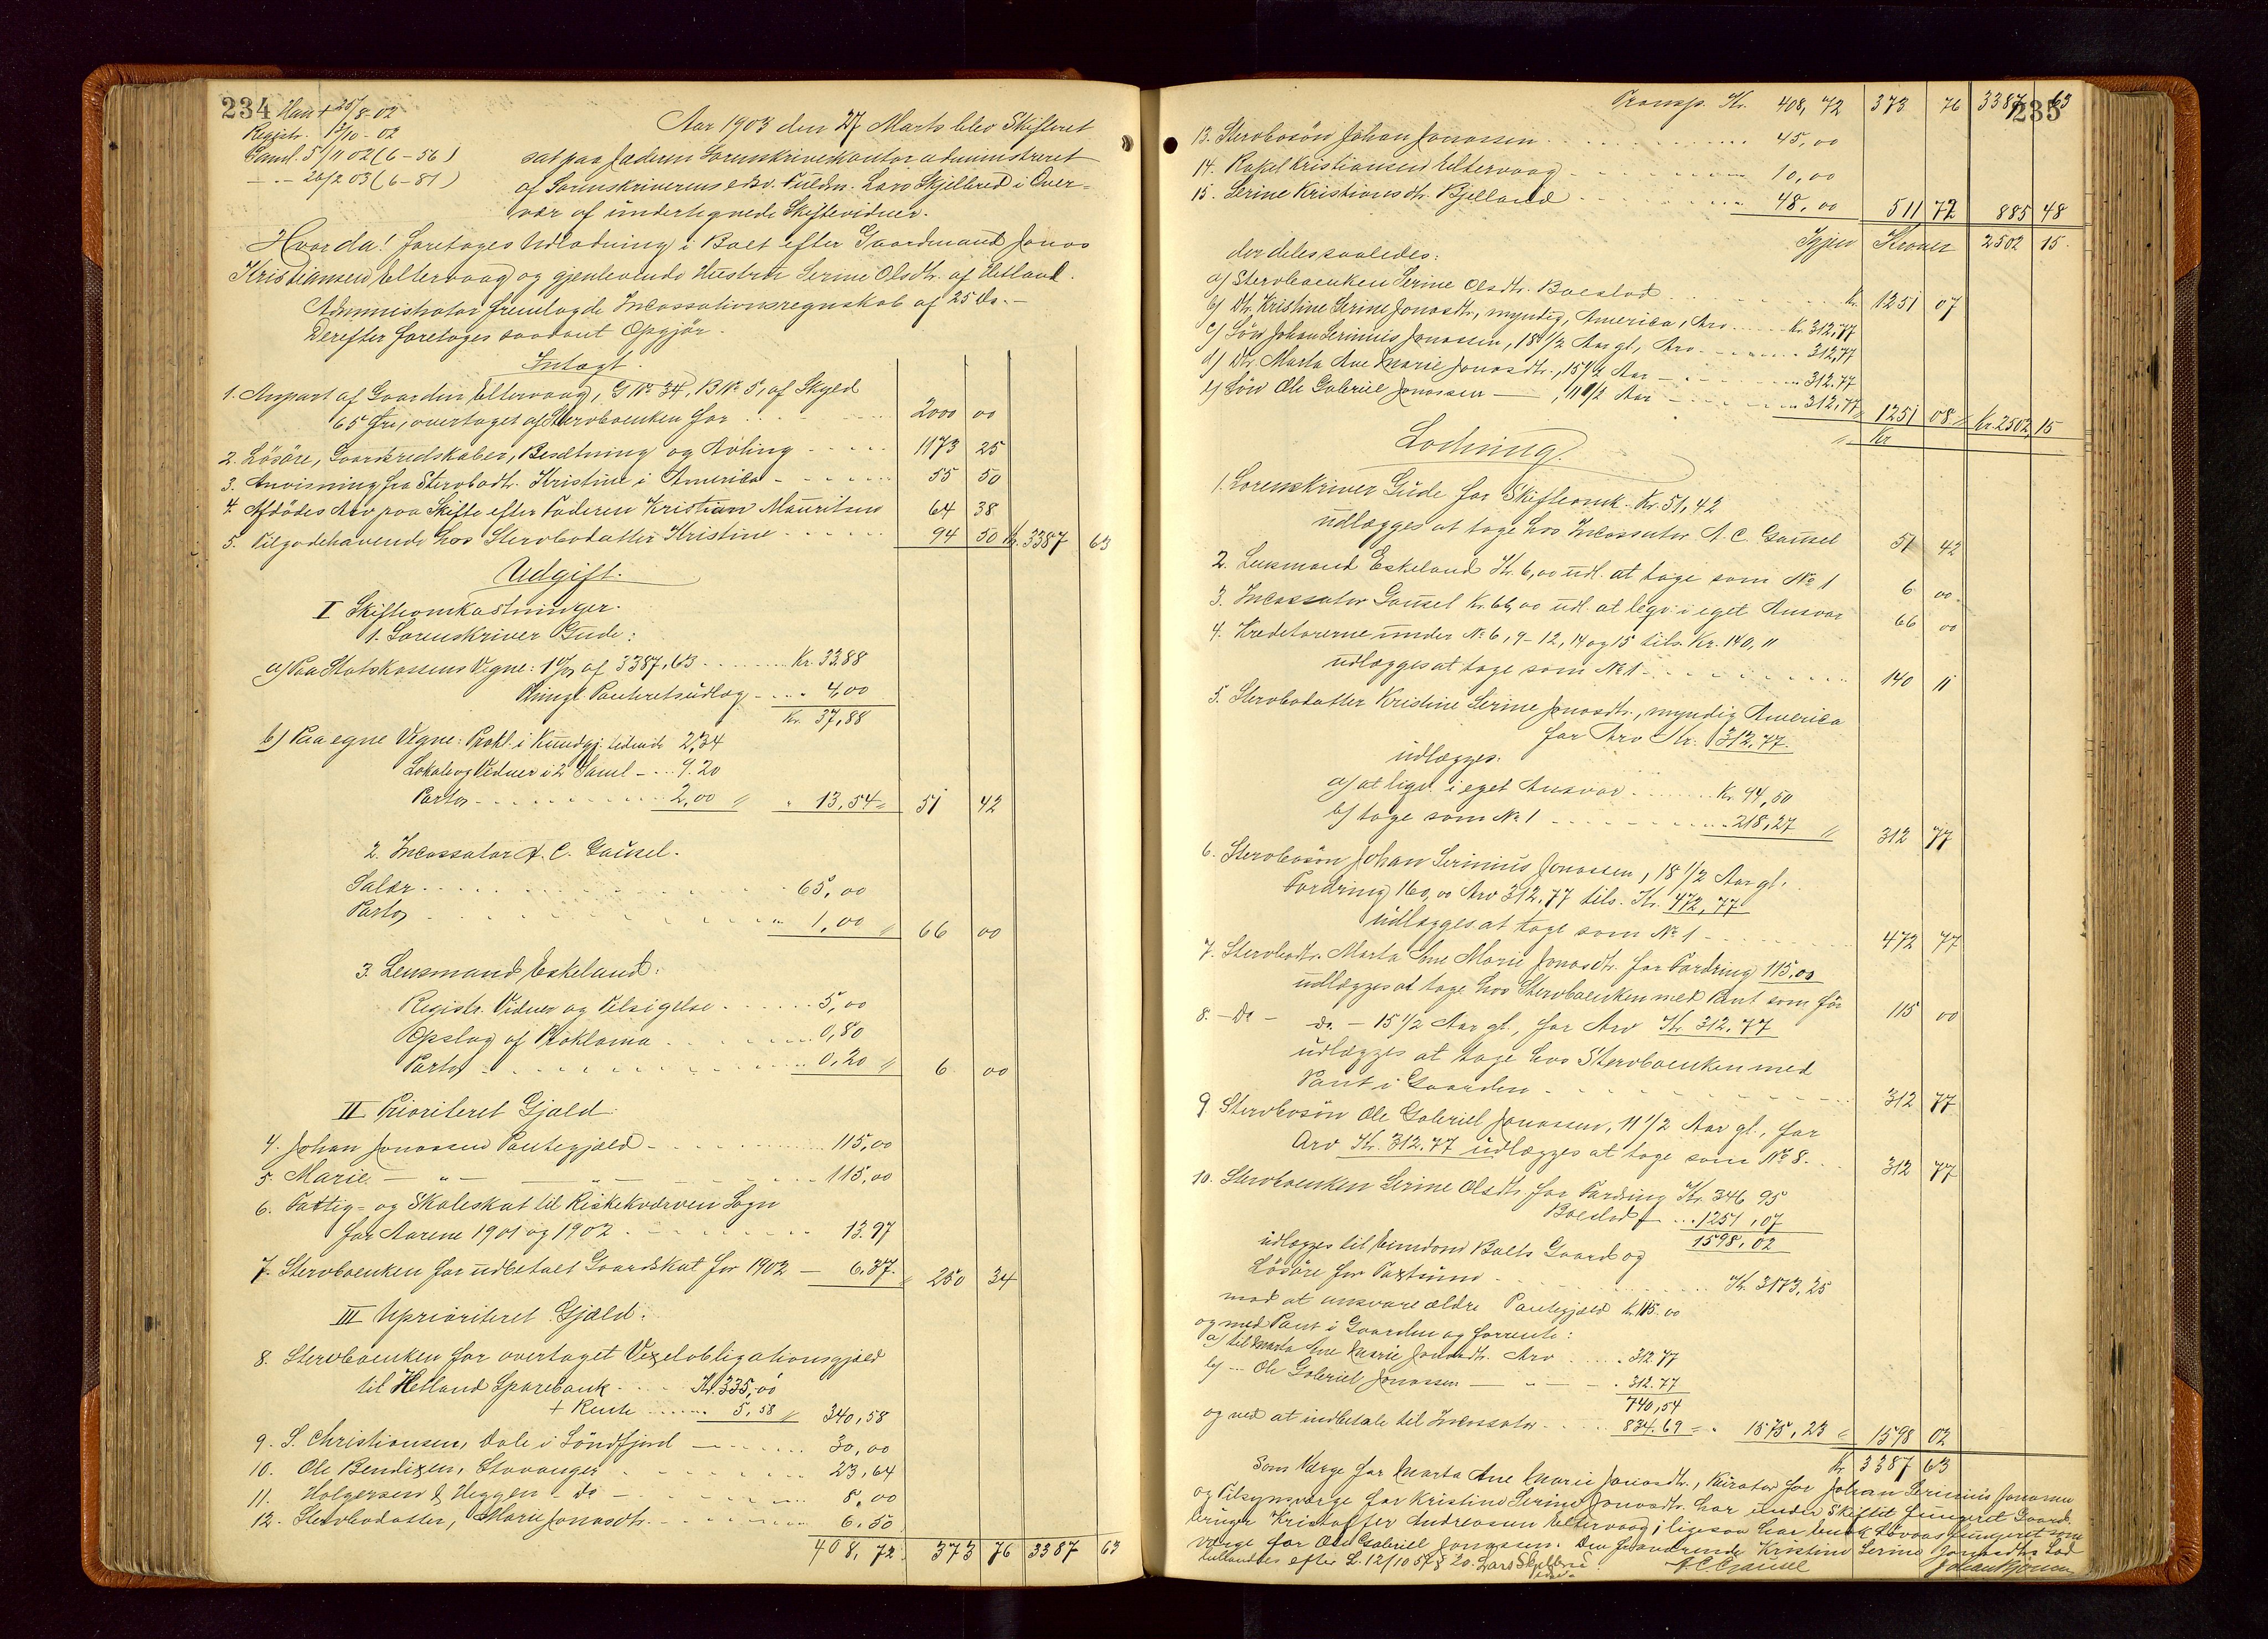 234 Han + 25/8-02
Registr. 17/10-02
Saml. 5/11 02 (6-56)
- - 26/2 03 (6-81)
Aar 1903 den 27 Marts blev Skifteret
sat paa Jæderen Sorenskriverkontor administreret
af Sorenskriverens edsv. Fuldm. Lars Skjelbred i Over-
vær af undertegnede Skiftevidner.
Hvorda! foretoges Udlodning i Boet efter Gaardmand Jonas
Kristiansen Eltervaag og gjenlevende Hustru Serine Olsdtr. af Hetland.
Administrator fremlagde Incassationsregnskab af 25 ds.-
Derefter foretoges saadant Opgjør.
Indtægt.
1. Anpart af Gaarden Eltervaag, G.No 34, B.No 5, af Skyld
65 Øre, overtaget af Stervboenken for 2000 00
2. Løsøre, Gaardsredskaber, Besætning og Avling 1173 25
3. Anvisning fra Stervbodtr. Kristine i America 55 50
4. Afdødes Arv paa Skifte efter Faderen Kristian Mauritsen 64 38
5. Tilgodehavende hos Stervbodatter Kristine 94 50 Kr. 3387 63
Udgift.
I Skifteomkostninger.
1. Sorenskriver Gude:
a) Paa Statskassens Vegne: 1% af 3387,63 Kr. 33.88
Thingl. Panteretsudlæg 4,00
Kr. 37,88
b) Paa egne Vegne: Prokl. i Kundgj. tidende 2,34
Lokale og Vidner i 2 Saml. 9.20
Porto 2,00 " 13,54 51 42
2. Incassator A. C. Gausel.
Salær 65,00
Porto 1,00 66 00
3. Lensmand Eskeland:
Registr. Vidner og Tilsigelse 5,00
Opslag af Proklama 0,80
Porto 0,20 6 00
II Prioriteret Gjæld
4. Johan Jonassen Pantegjæld 115,00
5. Marie - " - 115,00
6. Fattig- og Skoleskat til Riskekværven Sogn
for Aarene 1901 og 1902 13.97
7. Stervboenken for udbetalt Gaardskat for 1902 - 6.37 250 34
III Uprioriteret Gjæld.
8. Stervboenken for overtaget Vexelobligationsgjæld
til Hetland Sparebank Kr. 335,00
+ Rente 5,58 340,58
9. S. Christiansen, Dale i Söndfjord 30,00
10. Ole Bendixen, Stavanger 23,64
11. Holgersen & Heggen - do - 8,00
12. Stervbodatter, Marie Jonasdtr. 6.50
408,72 373 76 3387 63
235
Transp. Kr. 408,72 373 76 3387 63
13. Stervbosøn Johan Jonassen 45,00
14. Rakel Kristiansen Eltervaag 10,00
15. Serine Kristiansdtr. Bjelland 48,00 511 72 885 48
Igjen Kroner 2502 15
der deles saaledes:
a) Stervboenken Serine Olsdtr. Boeslod Kr. 1251 07
b) Dtr. Kristine Serine Jonasdtr., myndig, America, Arv Kr. 312,77
c) Søn Johan Serinius Jonassen, 18 1/2 Aar gl., Arv 312,77
d) Dtr. Marta Ane Marie Jonasdtr., 15 1/2 Aar - 312.77
e) Søn Ole Gabriel Jonassen - , 11 1/2 Aar - 312,77 1251 08 Kr. 2502,15
Kr
Lodning.
1. Sorenskriver Gude for Skifteomk. Kr. 51,42
udlægges at tage hos Incassator A. C. Gausel 51 42
2. Lensmand Eskeland Kr. 6,00 udl. at tage som No 1 6 00
3. Incassator Gausel Kr. 66,00 udl. at ligv. i eget Ansvar 66 00
4. Kreditorerne under No 6, 9-12, 14 og 15 tils. Kr. 140,11
udlægges at tage som No 1 140 11
5. Stervbodatter Kristine Serine Jonasdtr., myndig America
for Arv Kr. 312.77.
udlægges.
a) at ligv. i eget Ansvar Kr. 94,50
b) tage som No 1 218,27 312 77
6. Stervbosøn Johan Serinius Jonassen, 18 1/2 Aar gl.
Fordring 160,00 Arv 312,77 tils. Kr. 472,77
udlægges at tage som No 1 472 77
7. Stervbodtr. Marta Ane Marie Jonasdtr. for Fordring 115.00
udlægges at tage hos Stervboenken med Pant som før 115 00
8. - Do - do. - 15 1/2 Aar gl., for Arv Kr 312.77
udlægges at tage hos Stervboenken med
Pant i Gaarden 312 77
9 Stervbosøn Ole Gabriel Jonassen, 11 1/2 Aar gl., for
Arv Kr. 312.77 udlægges at tage som No 8. 312 77
10. Stervboenken Serine Olsdtr. for Fordring Kr. 346 95
Boeslod 1251,07
1598,02
udlægges til Eiendom Boets Gaard og
Løsøre for Taxtsum Kr. 3173,25
mod at ansvare ældre Pantegjæld Kr. 115.00
og med Pant i Gaarden og forrente:
a) til Marta Ane Marie Jonasdtr. Arv 312.77
b) - Ole Gabriel Jonassen - " - 312.77
740,54
og ved at indbetale til Incassator 834.69 1575,23 1598 02
Kr. 3387 63
Som Værge for Marta Ane Marie Jonasdtr., Kurator for Johan Serinius Jonassen
og Tilsynsværge for Kristine Serine Jonasdtr. har under Skiftet fungeret Gaard-
bruger Kristoffer Andreassen Eltervaag; ligesaa har fungeret som
værge for Ole Gabriel Jonassen. Den fraværende Kristine Serine Jonasdtrs Lod
efter L. 12/10 57 § 20. Lars Skjelbred
A. C. Gausel